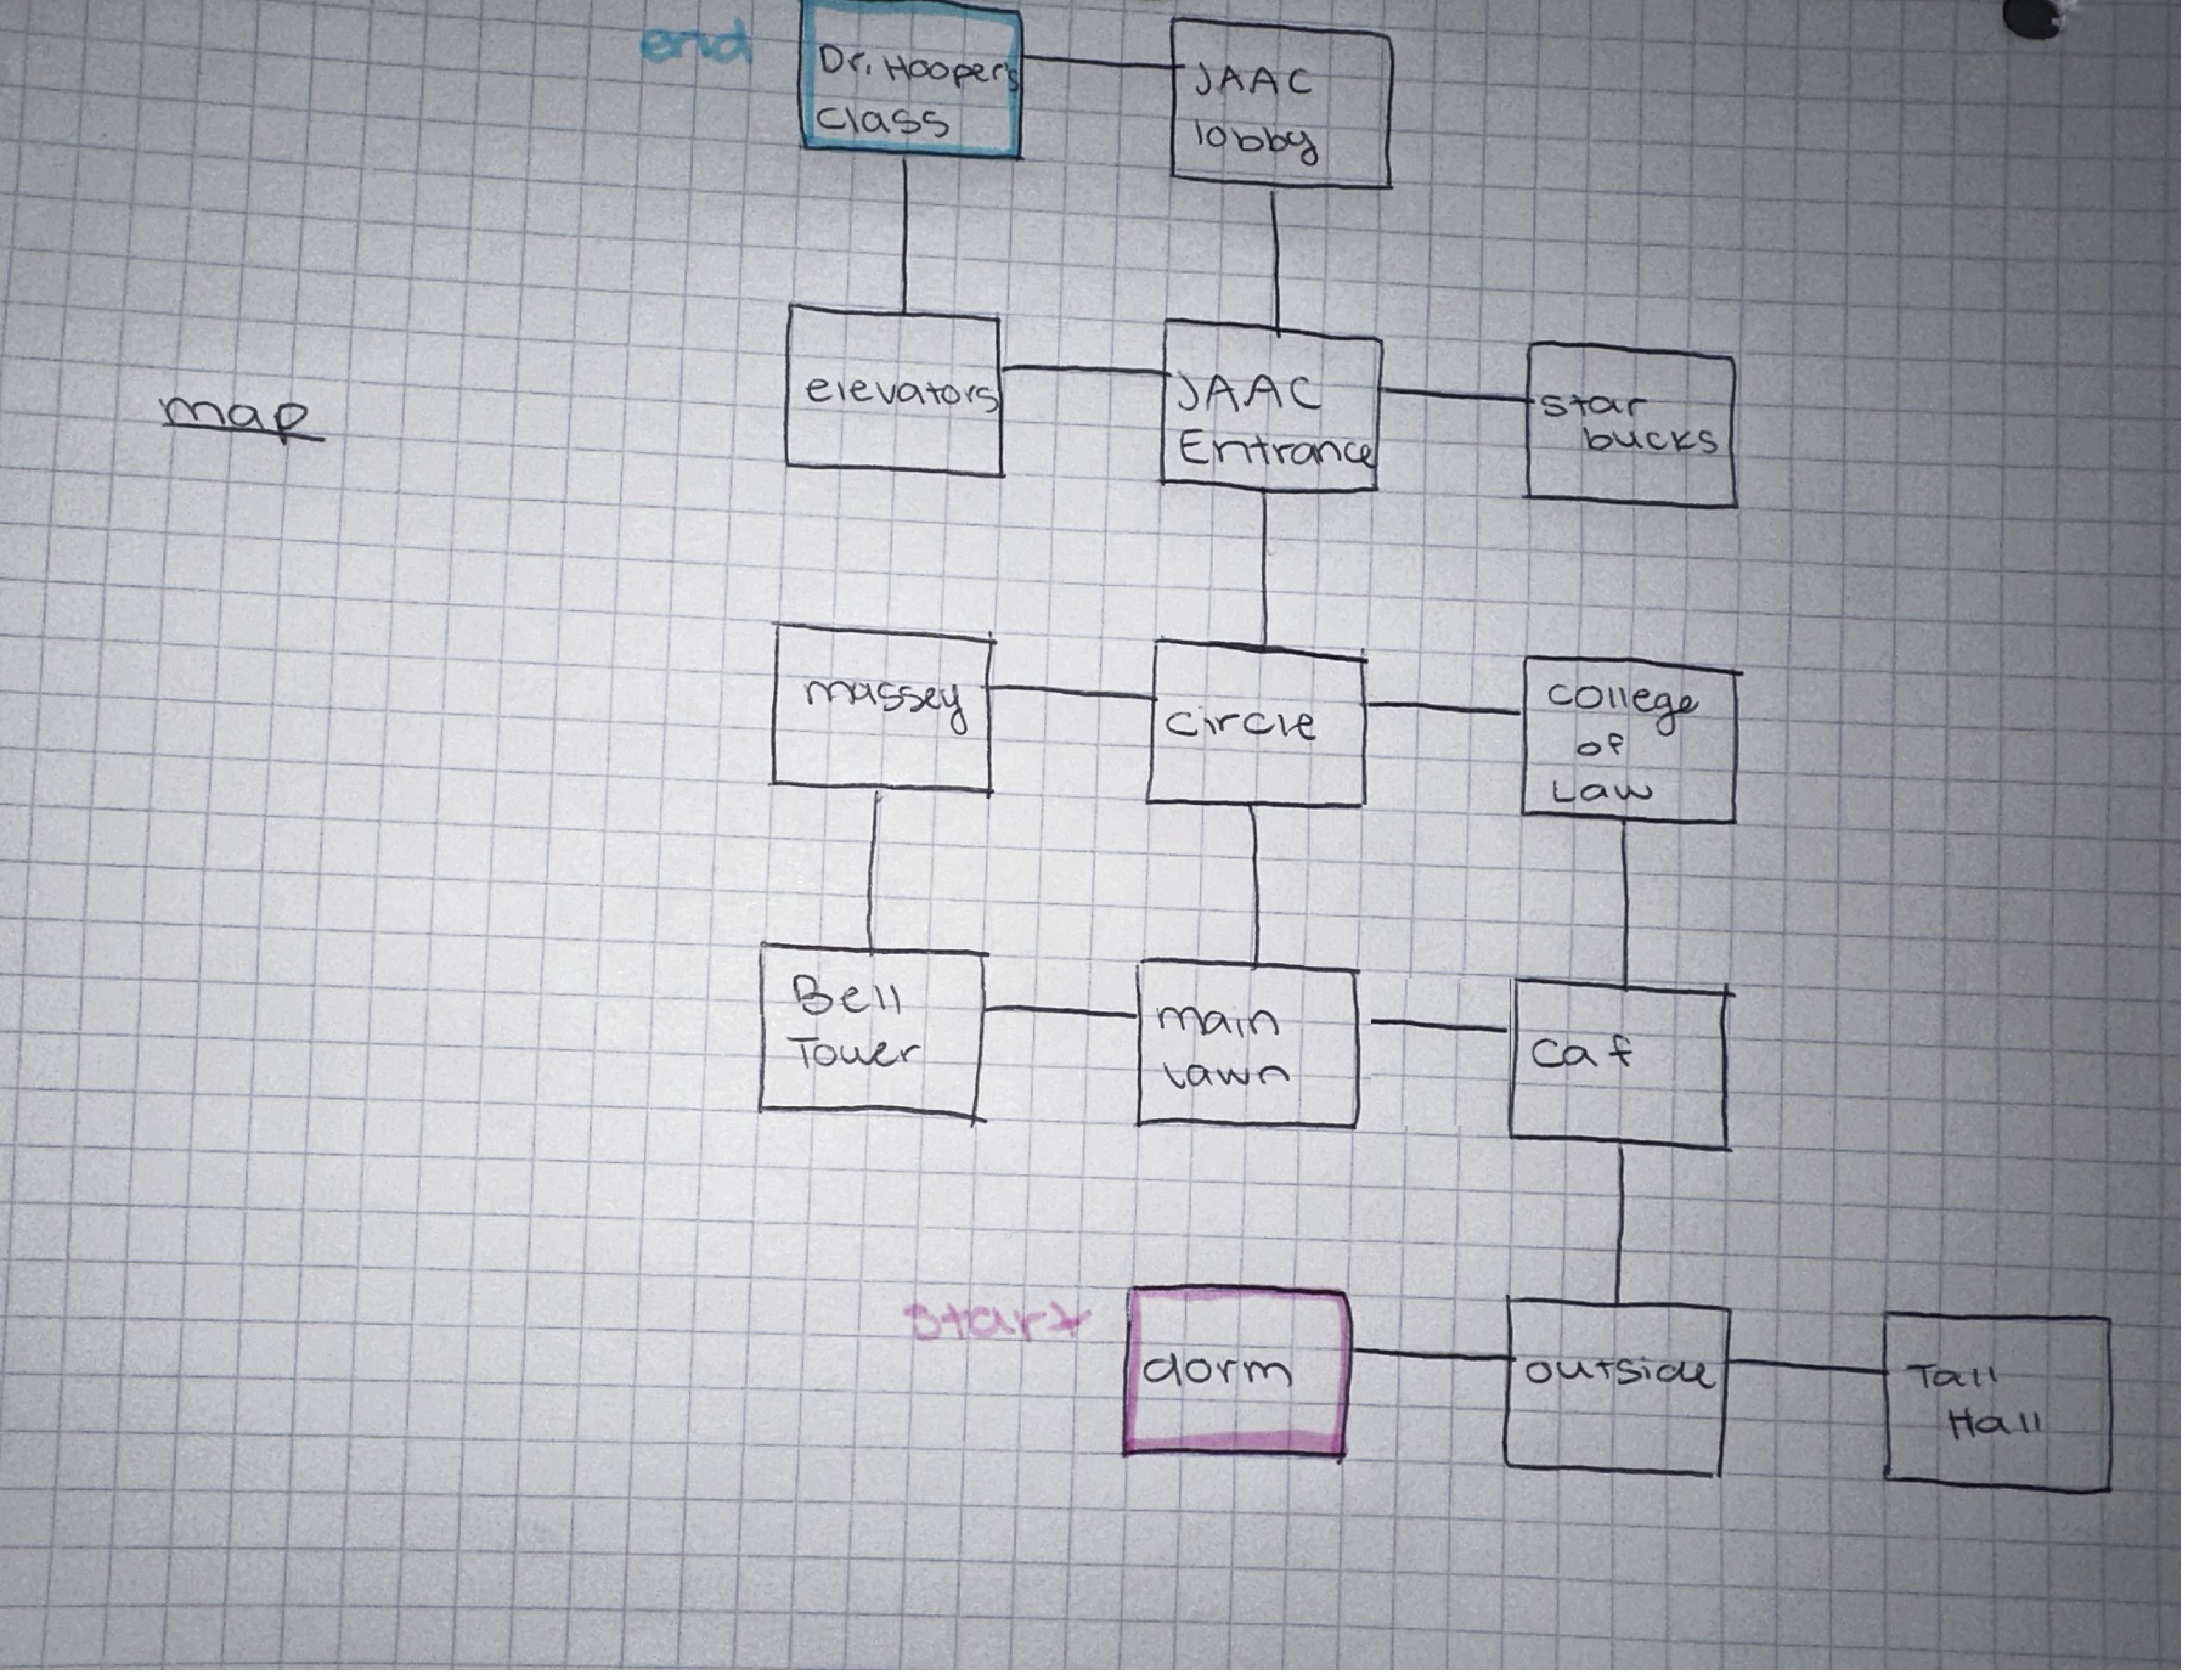 end
Dr. Hooper's
class
JAAC
lobby
map
elevators
JAAC
Entrance
star
bucks
massey
circle
college
of
Law
Bell
Tower
main
lawn
caf
start
dorm
outside
Tall
Hall